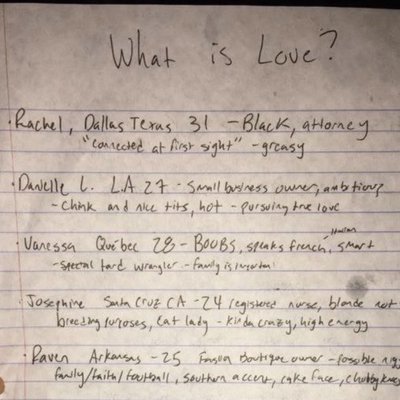 What is Love?
· Rachel, Dallas Texas 31 - Black, attorney
"connected at first sight" - greasy
· Danielle L. L.A. 27 - Small business owner, ambitious
- Chink and nice tits, hot - pursuing true love
· Vanessa Québec 28 - BOOBS, speaks french, Italian, smart
- special tard wrangler - family is important
· Josephine Santa Cruz CA - 24 registered nurse, blonde not
breeding purposes, cat lady - kinda crazy, high energy
· Raven Arkansas - 25 boutique owner - possible
family/faith/football, southern accent, cake face, chubby